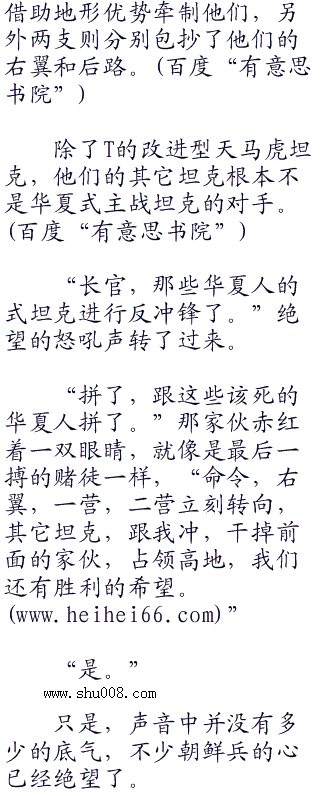 借助地形优势牵制他们，另
外两支则分别包抄了他们的
右翼和后路。(百度“有意思
书院”)
除了T的改进型天马虎坦
克，他们的其它坦克根本不
是华夏式主战坦克的对手。
(百度“有意思书院”)
“长官，那些华夏人的
式坦克进行反冲锋了。”绝
望的怒吼声转了过来。
“拼了，跟这些该死的
华夏人拼了。”那家伙赤红
着一双眼睛，就像是最后一
搏的赌徒一样，“命令，右
翼，一营，二营立刻转向，
其它坦克，跟我冲，干掉前
面的家伙，占领高地，我们
还有胜利的希望。
(www.heihei66.com)”
“是。”
www.shu008.com
只是，声音中并没有多
少的底气，不少朝鲜兵的心
已经绝望了。